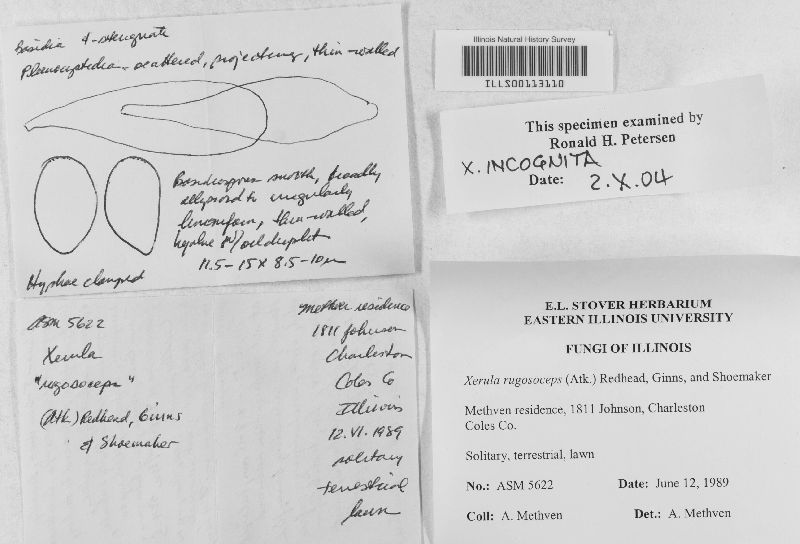 Basidia 4-sterigmate
Pleurocystidia - scattered, projecting, thin-walled
Basidiospores smooth, broadly
ellipsoid to irregularly
limoniform, thin-walled,
hyaline w/ oil droplet
11.5-15 x 8.5-10µ
Hyphae clamped
Illinois Natural History Survey
ILLS00113110
This specimen examined by
Ronald H. Petersen
X. INCOGNITA
Date: 2.X.04
ASM 5622
Xerula
"rugosoceps"
(Atk.) Redhead, Ginns
& Shoemaker
Methven residence
1811 Johnson
Charleston
Coles Co
Illinois
12.VI.1989
solitary
terrestrial
lawn
E.L. STOVER HERBARIUM
EASTERN ILLINOIS UNIVERSITY
FUNGI OF ILLINOIS
Xerula rugosoceps (Atk.) Redhead, Ginns, and Shoemaker
Methven residence, 1811 Johnson, Charleston
Coles Co.
Solitary, terrestrial, lawn
No.: ASM 5622 Date: June 12, 1989
Coll: A. Methven Det.: A. Methven